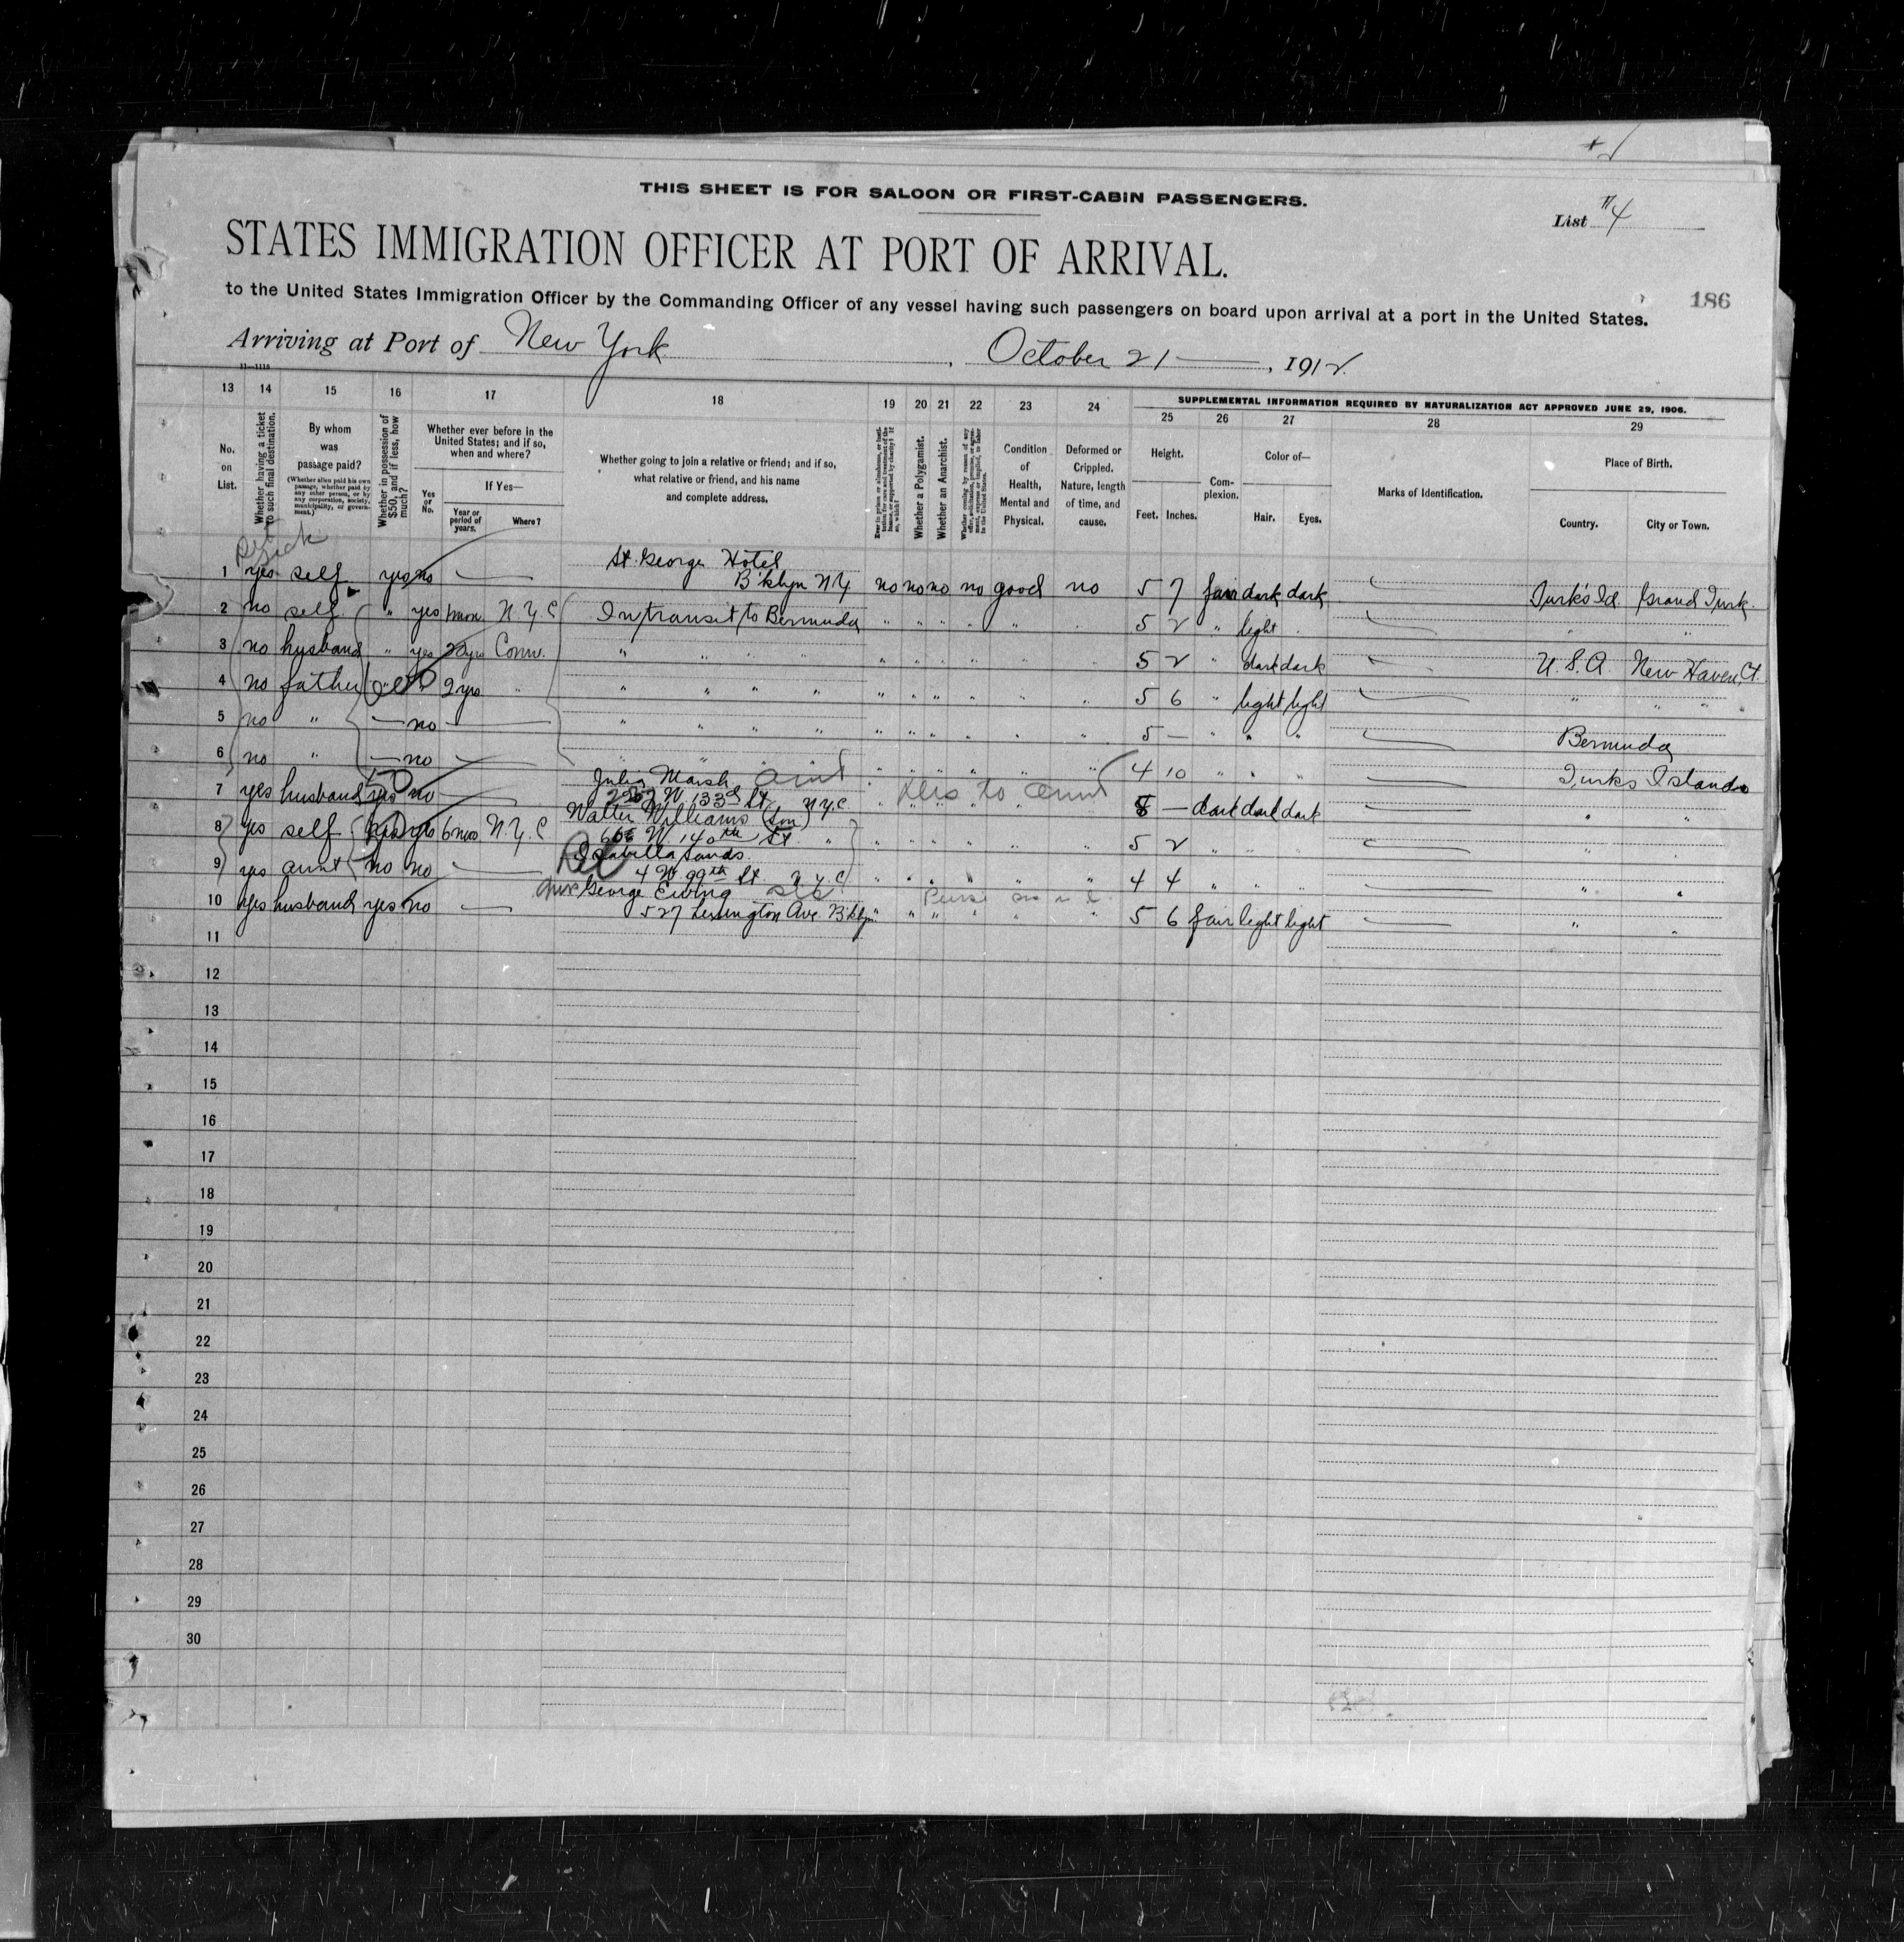 THIS SHEET IS FOR SALOON OR FIRST-CABIN PASSENGERS.
List #4
STATES IMMIGRATION OFFICER AT PORT OF ARRIVAL.
186
to the United States Immigration Officer by the Commanding Officer of any vessel having such passengers on board upon arrival at a port in the United States.
Arriving at Port of New York, October 21, 1912.
11—1115
13 14 15 16 17 18 19 20 21 22 23 24 SUPPLEMENTAL INFORMATION REQUIRED BY NATURALIZATION ACT APPROVED JUNE 29, 1906.
25 26 27 28 29
No. on List.
Whether having a ticket to such final destination.
By whom was passage paid?
(Whether alien paid his own passage, whether paid by any other person, or by any corporation, society, municipality, or government.)
Whether in possession of $50, and if less, how much?
Whether ever before in the United States; and if so, when and where?
Yes or No.
If Yes—
Year or period of years.
Where?
Whether going to join a relative or friend; and if so, what relative or friend, and his name and complete address.
Whether a Polygamist.
Whether an Anarchist.
Condition of Health, Mental and Physical.
Deformed or Crippled. Nature, length of time, and cause.
Height.
Feet. Inches.
Complexion.
Color of—
Hair. Eyes.
Marks of Identification.
Place of Birth.
Country. City or Town.
St. George Hotel
1 yes self yes no — B'klyn N.Y. no no no no good no 5 7 fair dark dark — Turks Id. Grand Turk.
2 no self " yes 1 mon. N.Y.C In transit to Bermuda " " " " " 5 2 " light — " "
3 no husband " yes 20 yrs Conn. " " " " 5 2 " dark dark — U.S.A. New Haven, Ct.
4 no father " 2 yrs " " " " " 5 6 " light light — " " "
5 no " — no — " " " " 5 — " " " — Bermuda
6 no " — no — " " " " 4 10 " " " — Turks Islands
Julia Marsh aunt
7 yes husband yes no — W 133rd St. N.Y.C to aunt — dark dark dark — " "
Walter Williams (son)
8 yes self yes 6 mos. N.Y.C W 140th St. " 5 2 " " " — " "
Isabella Sands
9 yes aunt no no — 4 W 99th St. N.Y.C 4 4 " " " — " "
George Ewing
10 yes husband yes no — 527 Lexington Ave. B'klyn 5 6 fair light light — " "
11
12
13
14
15
16
17
18
19
20
21
22
23
24
25
26
27
28
29
30